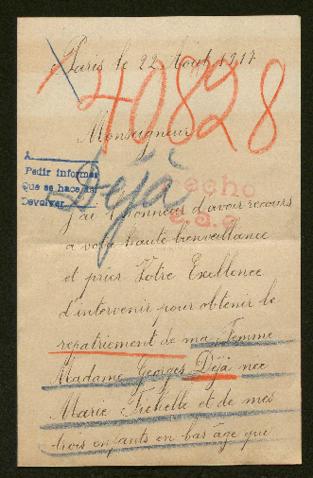 Paris le 22 Août 1917
140828
Monseigneur
Déjà
A
Pedir informes
Que se hace así
Devolver
echo
j'ai l'honneur d'avoir recours
à votre haute bienveillance
et prier Votre Exellence
d'intervenir pour obtenir le
repatriement de ma femme
Madame Georges Déjà née
Marie et de mes
trois enfants en bas âge que